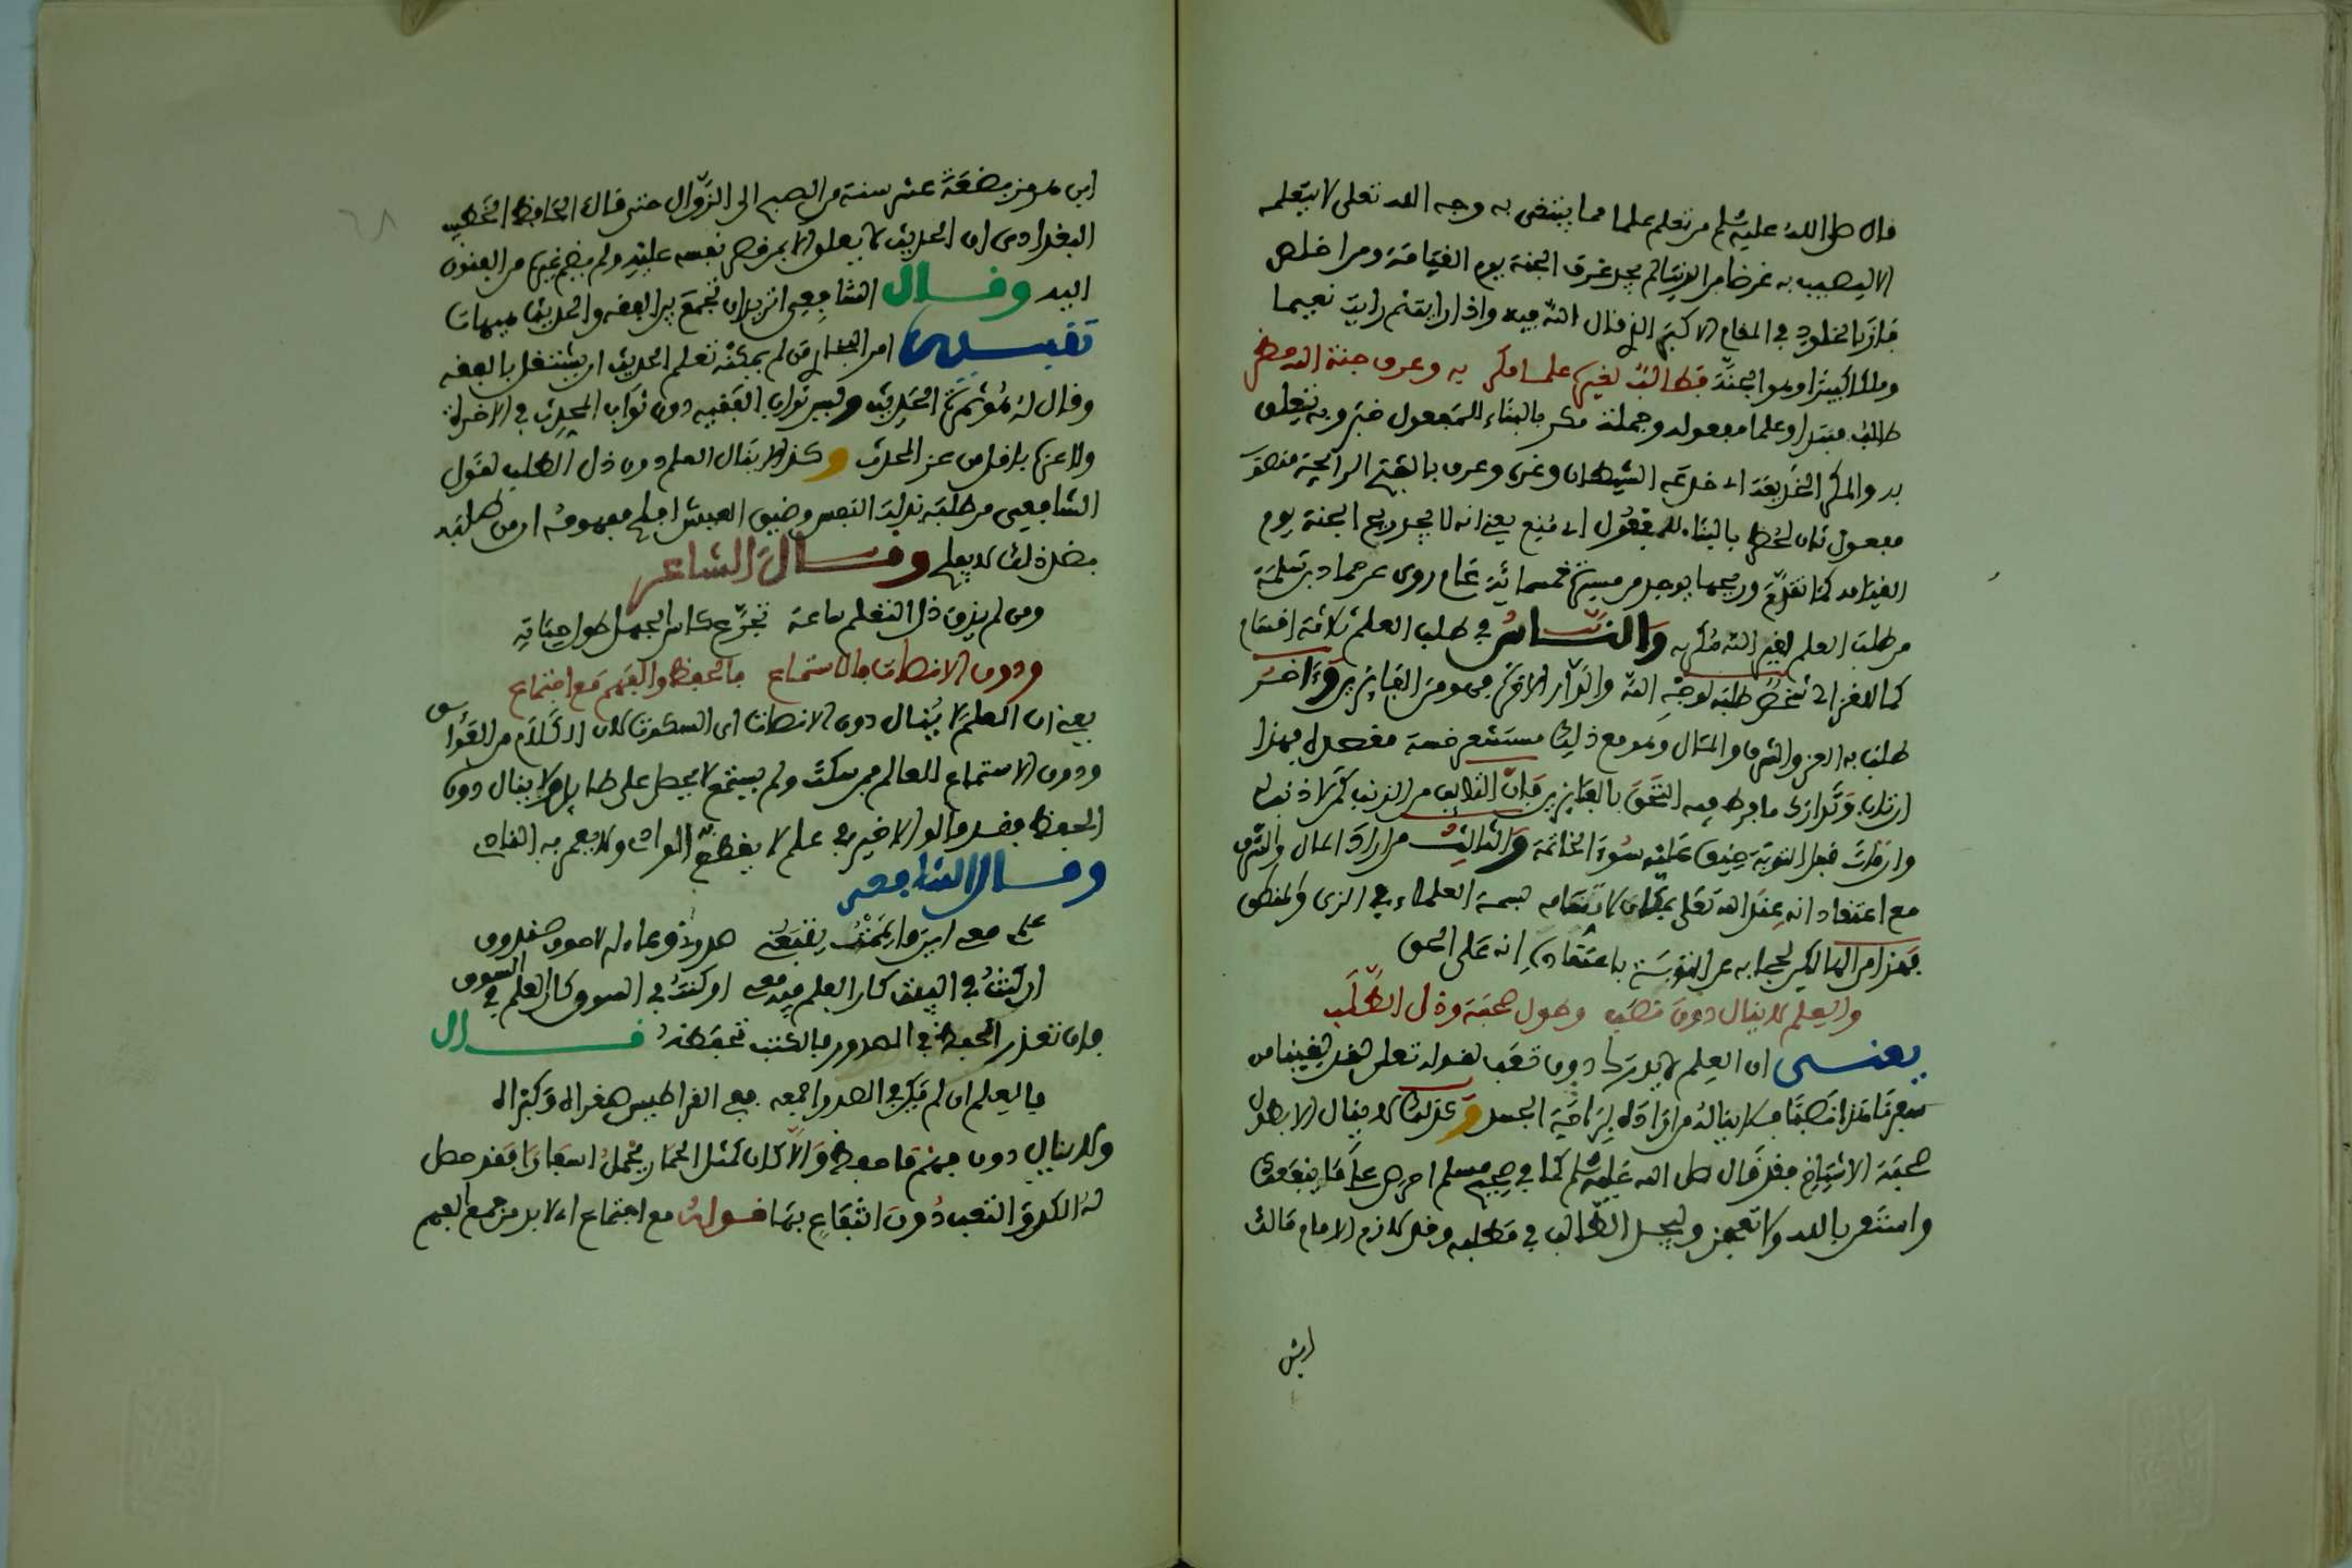 قال صلى الله عليه وسلم من تعلم علما مما يبتغى به وجه الله تعلى لا يتعلمه
الا ليصيب به غرضا من الدنيا لم يجد عرف الجنة يوم القيامة ومن اخلص
فاز بالخلود في المقام الاكبر الذي قال الله فيه واذا رايت ثم رايت نعيما
وملكا كبيرا وهو الجنة فطالب لغيره علما مكر به وعرف جنة الله حظر
طالب مبتدا وعلما مفعوله وجملة مكر بالبناء للمفعول خبر وبه يتعلق
به والمكر الخديعة اي خدعه الشيطان وغره وعرف بالفتح الرائحة منصوب
مفعول ثان لحظر بالبناء للمفعول اي منع يعني انه لا يجد ريح الجنة يوم
القيامة كما تقدم وريحها يوجد من مسيرة خمسمائة عام روي عن حماد بن سلمة
من طلب العلم لغير الله مكر به والناس في طلب العلم ثلاثة اقسام
كما للغزالي شخص طلبه لوجه الله والدار الاخرة فهو من الفايزين وءاخر
طلب به العز والشرف والمال وهو مع ذلك مستشعر خسة مقصده فهذا
ان تاب وتدارك ما فرط فيه التحق بالفايزين فان التائب من الذنب كمن لا ذنب له
وان مات قبل التوبة خيف عليه سوء الخاتمة والثالث من اراد المال والشرف
مع اعتقاد انه عند الله تعلى بمكان لاتسامه بسمة العلماء في الزي والمنطق
فهذا من الهالكين لحجابه عن التوبة باعتقاده انه على الحق
والعلم لا ينال دون نصب وطول صحبة وذل الطلب
يعني ان العلم لا يدرك دون تعب لقوله تعلى لقد لقينا من
سفرنا هذا نصبا فلا ينال من اراده براحة الجسد وكذلك لا ينال الا بطول
صحبة الاشياخ فقد قال صلى الله عليه وسلم كما في صحيح مسلم احرص على ما ينفعك
واستعن بالله ولا تعجز وليجد الطالب في مطلبه وقد لازم الامام مالك
ابن
ابن هرمز بضعة عشر سنة من الصبح الى الزوال حتى قال الحافظ الخطيب
البغدادي ان الحديث لا يعلق الا بمن قصر نفسه عليه ولم يضم غيره من الفنون
اليه وقال الشافعي اتريد ان تجمع بين الفقه والحديث هيهات
تنبيه امر البخاري من لم يمكنه تعلم الحديث ان يشتغل بالفقه
وقال له هو ثمرة الحديث وليس ثواب الفقيه دون ثواب المحدث في الاخرة
ولا عزه باقل من عز المحدث وكذا لا ينال العلم دون ذل الطلب لقول
الشافعي من طلبه بذلة النفس وضيق العيش افلح مفهومه ان من طلبه
بضد ذلك لا يفلح وقال الشاعر
ومن لم يذق ذل التعلم ساعة تجرع كاس الجهل طول حياته
ودون الانصات فالاستماع فالحفظ والفهم مع اجتماع
يعني ان العلم لا ينال دون الانصات اي السكوت لان الكلام من القواس
ودون الاستماع للعالم فمن سكت ولم يستمع لا يحصل على طايل ولا ينال دون
الحفظ فقد قالوا لا خير في علم لا يقطع به الواد ولا يعمر به الناد
وقال الشافعي
علمي معي اينما يممت ينفعني صدري وعاء له لا جوف صندوق
ان كنت في البيت كان العلم فيه معي او كنت في السوق كان العلم في السوق
فان تعذر الحفظ في الصدور فالكتب تحفظه قال
فالعلم ان لم يك في الصدر اجمعه ففي القراطيس صغراه وكبراه
ولا ينال دون فهم ما حفظ والا كان كمثل الحمار يحمل اسفارا فقد حصل
له الكد والتعب دون انتفاع بها قوله مع اجتماع اي لا بد من جمع الفهم